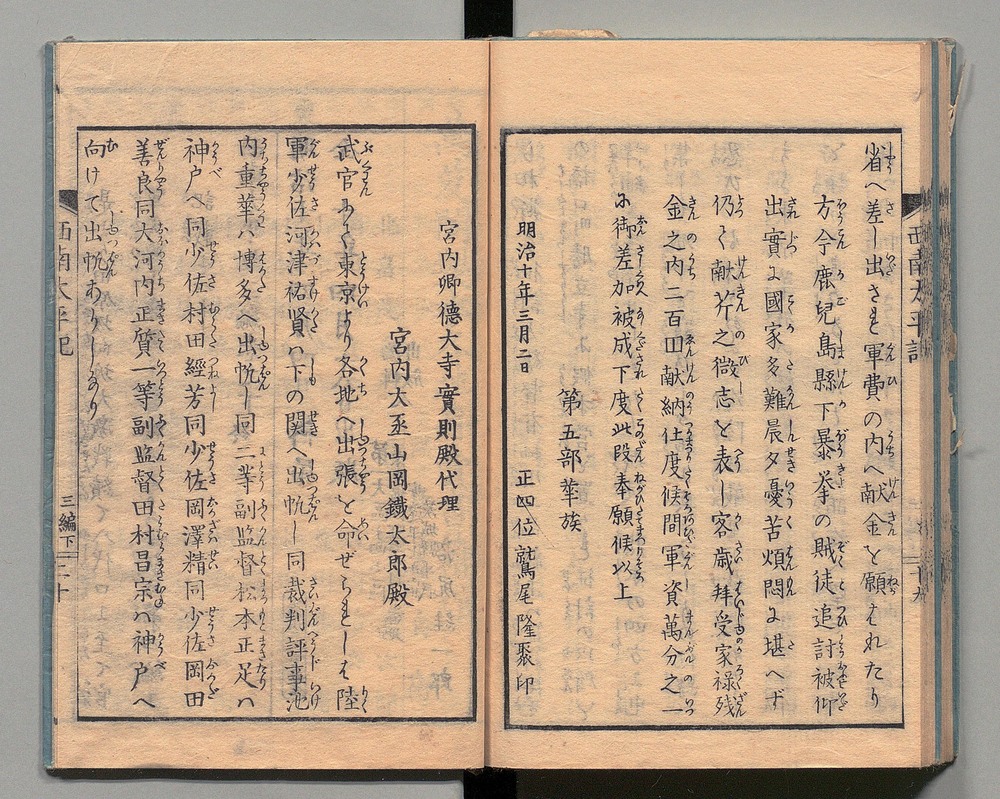 省へ差し出さる軍費の内へ献金を願はれたり
方今鹿兒島縣下暴挙の賊徒追討被仰
出實に國家多難晨夕憂苦煩悶に堪へず
仍て献芹之微志を表し客歳拜受家禄残
金之内二百円献納仕度候間軍資萬分之一
に御差加被成下度此段奉願候以上
第五部華族
明治十年三月二日 正四位鷲尾隆聚印
西南太平記
宮内卿德大寺實則殿代理
宮内大丞山岡鐵太郎殿
武官にて東京より各地へ出張を命ぜられしは陸
軍少佐河津祐賢ハ下の関へ出帆し同裁判評事池
内重華ハ博多へ出帆し同二等副監督松本正足ハ
神戸へ同少佐村田經芳同少佐岡澤精同少佐岡田
善良同大河内正質一等副監督田村昌宗ハ神戸へ
向けて出帆ありしなり
西南太平記 三編下 二十